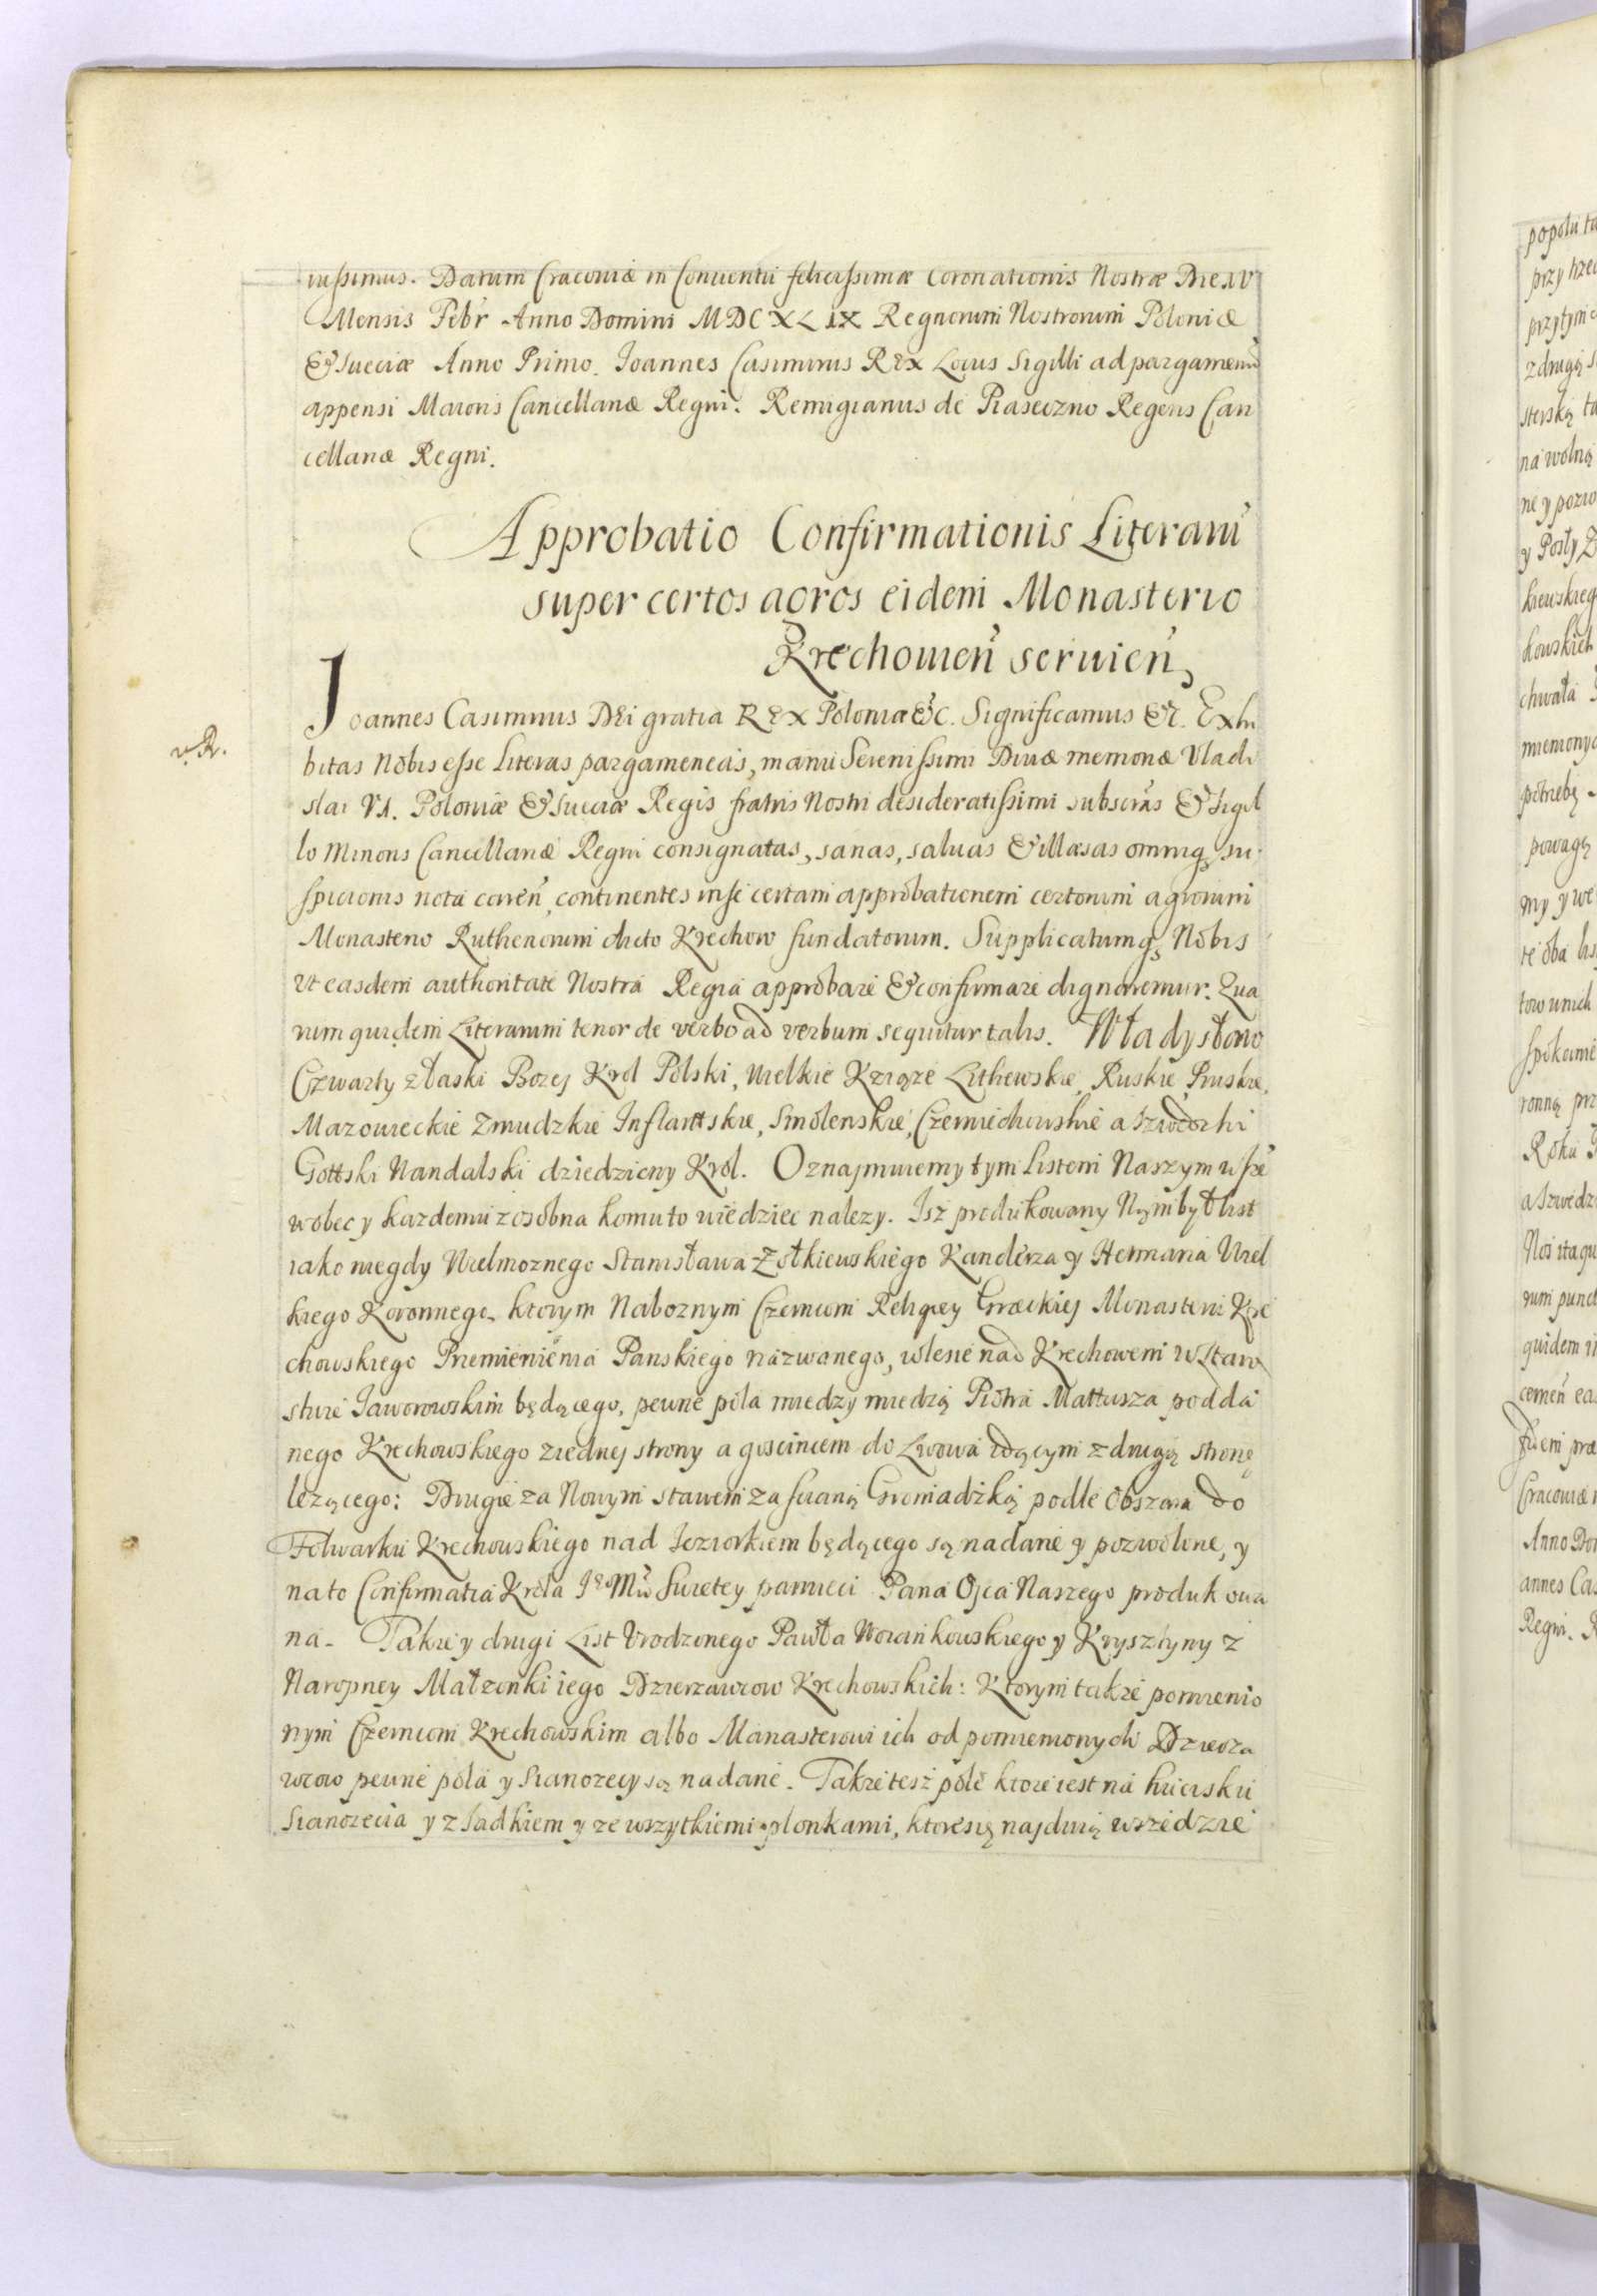 iussimus. Datum Cracoviæ in Conventu felicissimæ Coronationis Nostræ Die XV
Mensis Febr Anno Domini MDCXLIX Regnorum Nostrorum Poloniæ
& Sueciæ Anno Primo. Joannes Casimirus REX Locus Sigilli ad pargamenũ
appensi Maioris Cancellariæ Regni. Remigianus de Piaseczno Regens Can
cellariæ Regni.
Approbatio Confirmationis Literarũ
super certos agros eidem Monasterio
Krechovien̄ servien̄
Joannes Casimirus DEi gratia REX Poloniæ &c. Significamus &c. Exhi
v.R.
bitas Nobis esse Literas pargameneas, manu Serenissimi Divæ memoriæ Vladi
slai VI. Poloniæ & Sueciæ Regis fratris Nostri desideratissimi subscr̃as & Sigil
lo Minoris Cancellariæ Regni consignatas, sanas, salvas & illæsas omniq₃ su
spicionis nota caren̄, continentes in se certam approbationem certorum agrorum
Monasterio Ruthenorum dicto Krechow fundatorum. Supplicatumq₃ Nobis
ut easdem authoritate Nostra Regia approbare & confirmare dignaremur. Qua
rum quidem Literarum tenor de verbo ad verbum sequitur talis. Władysław
Czwarty z łaski Bozej Krol Polski, Wielkie Xiąze Lithewskie, Ruskie Pruskie,
Mazowieckie Zmudzkie Inflantskie, Smolenskie, Czerniechowskie a Szwedzki
Gottski Wandalski dziedzicny Krol. Oznajmuiemy tym Listem Naszym wsze
wobec y kazdemu zosobna komu to wiedziec nalezy. Isz produkowany Nam był list
iako niegdy Wielmoznego Stanisława Zołkiewskiego Kanclerza y Hetmana Wiel
kiego Koronnego, ktorym Naboznym Czerncom Religiey Græckiej Monasteru Kre
chowskiego Przemienienia Panskiego nazwanego, w lesie nad Krechowem w Staro
stwie Jaworowskim będącego, pewne pola miedzy miedzą Piotra Mattusza podda
nego Krechowskiego z iednej strony a goscincem do Lwowa idącym z drugą stronę
lezącego: Drugie za Nowym stawem za scianą Gromadzką podle Obszaru do
Folwarku Krechowskiego nad Jeziorkiem będącego są nadane y pozwolone, y
na to Confirmatia Krola Je° Mci Swietey pamieci Pana Ojca Naszego produkowa
na. Takze y drugi List Urodzonego Pawła Woiankowskiego y Krysztyny z
Naropney Małzonki iego Dzierzawcow Krechowskich: Ktorym takze pomienio
nym Czerncom Krechowskim albo Manasterowi ich od pomienionych Dzierza
wcow pewne pola y Sianozecy są nadane. Takze tesz pole ktore iest na
Sianozecia y z Sadkiem y ze wszytkiemi plonkami, ktore się najduią wszedzie